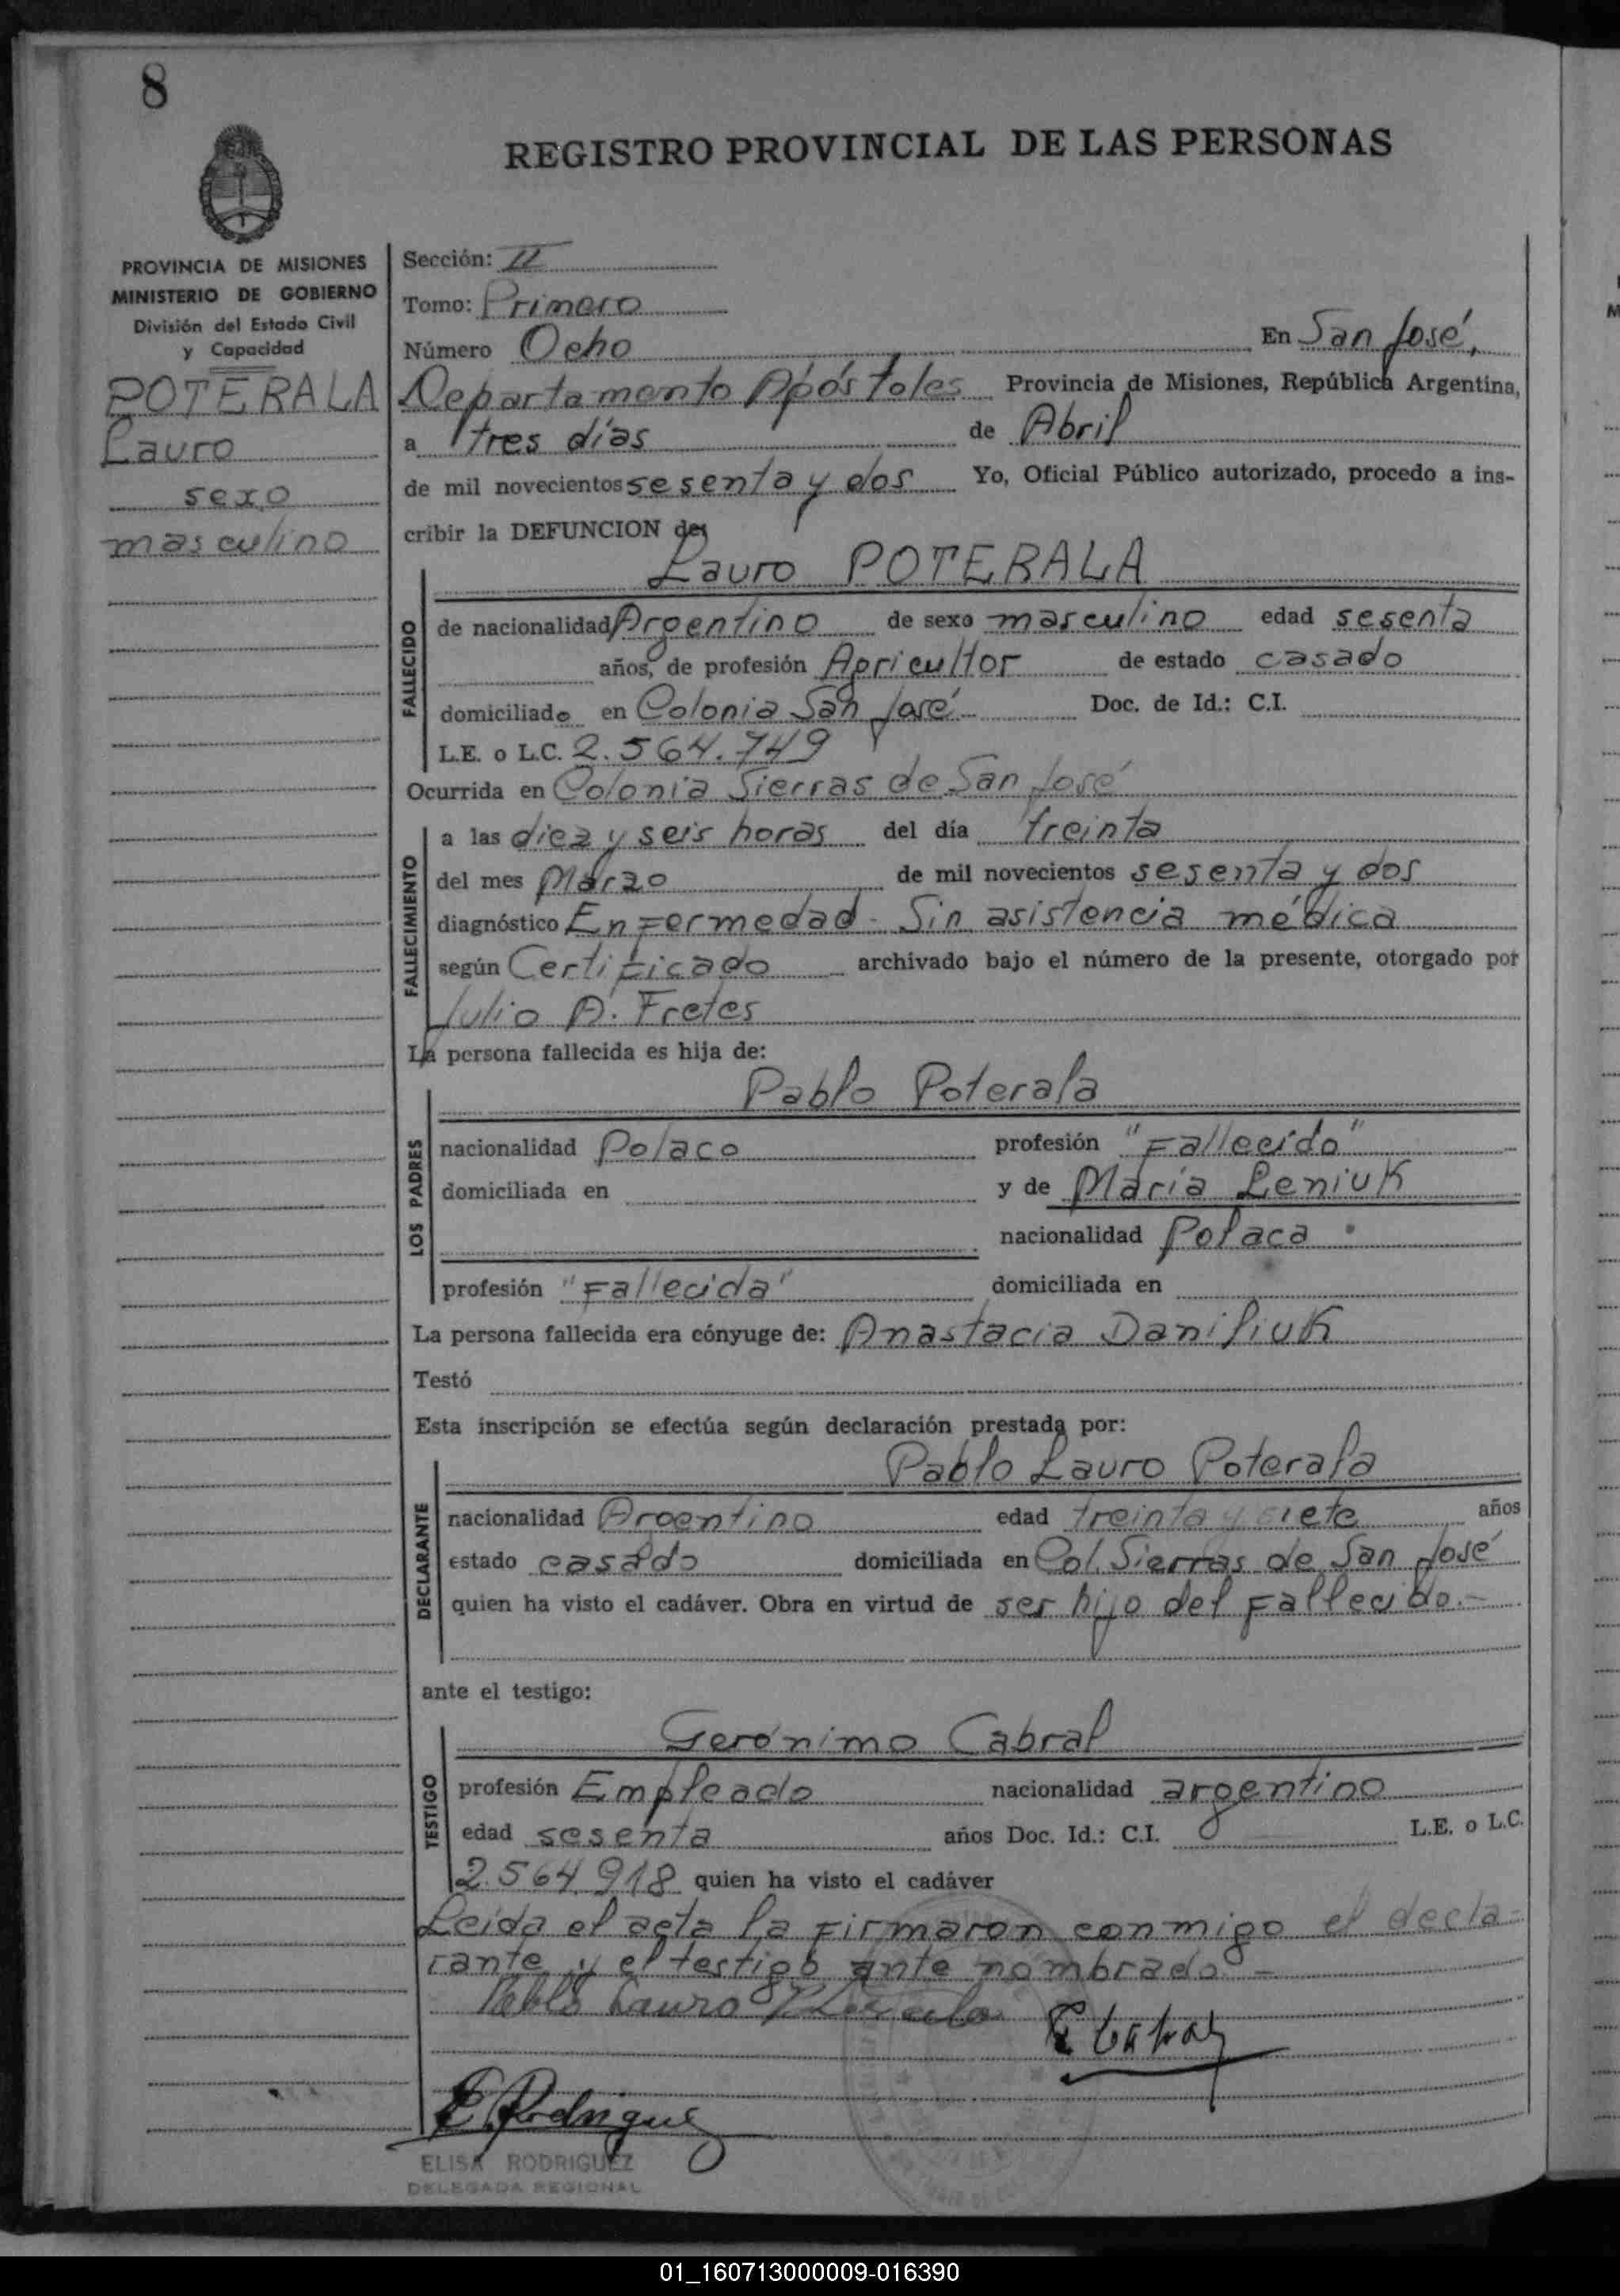 8
REGISTRO PROVINCIAL DE LAS PERSONAS
PROVINCIA DE MISIONES
MINISTERIO DE GOBIERNO
División del Estado Civil
y Capacidad
POTERALA
Lauro
sexo
masculino
Sección: II
Tomo: Primero
Número Ocho En San José,
Departamento Apóstoles Provincia de Misiones, República Argentina,
a tres días de Abril
de mil novecientos sesenta y dos Yo, Oficial Público autorizado, procedo a ins-
cribir la DEFUNCION de:
Lauro POTERALA
FALLECIDO
de nacionalidad Argentino de sexo masculino edad sesenta
años, de profesión Agricultor de estado casado
domiciliado en Colonia San José - Doc. de Id.: C.I.
L.E. o L.C. 2.564.749
Ocurrida en Colonia Sierras de San José
FALLECIMIENTO
a las diez y seis horas del día treinta
del mes Marzo de mil novecientos sesenta y dos
diagnóstico Enfermedad - Sin asistencia médica
según Certificado archivado bajo el número de la presente, otorgado por
Julio A. Fretes
La persona fallecida es hija de:
LOS PADRES
Pablo Poterala
nacionalidad Polaco profesión "Fallecido"
domiciliada en y de María Leniuk
nacionalidad Polaca
profesión "Fallecida" domiciliada en
La persona fallecida era cónyuge de: Anastacia Daniliuk
Testó
Esta inscripción se efectúa según declaración prestada por:
DECLARANTE
Pablo Lauro Poterala
nacionalidad Argentino edad treinta y siete años
estado casado domiciliada en Col. Sierras de San José
quien ha visto el cadáver. Obra en virtud de ser hijo del fallecido.-
ante el testigo:
TESTIGO
Gerónimo Cabral
profesión Empleado nacionalidad argentino
edad sesenta años Doc. Id.: C.I. L.E. o L.C.
2.564.918 quien ha visto el cadáver
Leida el acta la firmaron conmigo el decla-
rante y el testigo ante nombrado -
Pablo Lauro Poterala
G Cabral
E. Rodriguez
ELISA RODRIGUEZ
DELEGADA REGIONAL
01_160713000009-016390